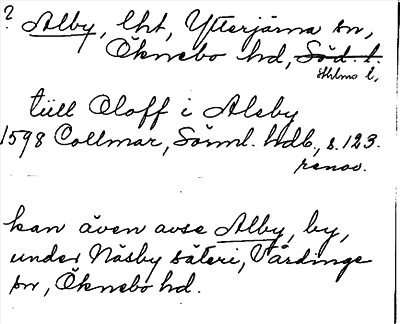 ? Alby, lht, Ytterjärna sn,
Öknebo hd, Söd. l.
Sthlms l,
till Oloff i Aleby
1598 Collmar, Sörml. hdb., s. 123.
renov.
kan även avse Alby, by,
under Näsby säteri, Vårdinge
sn, Öknebo hd.